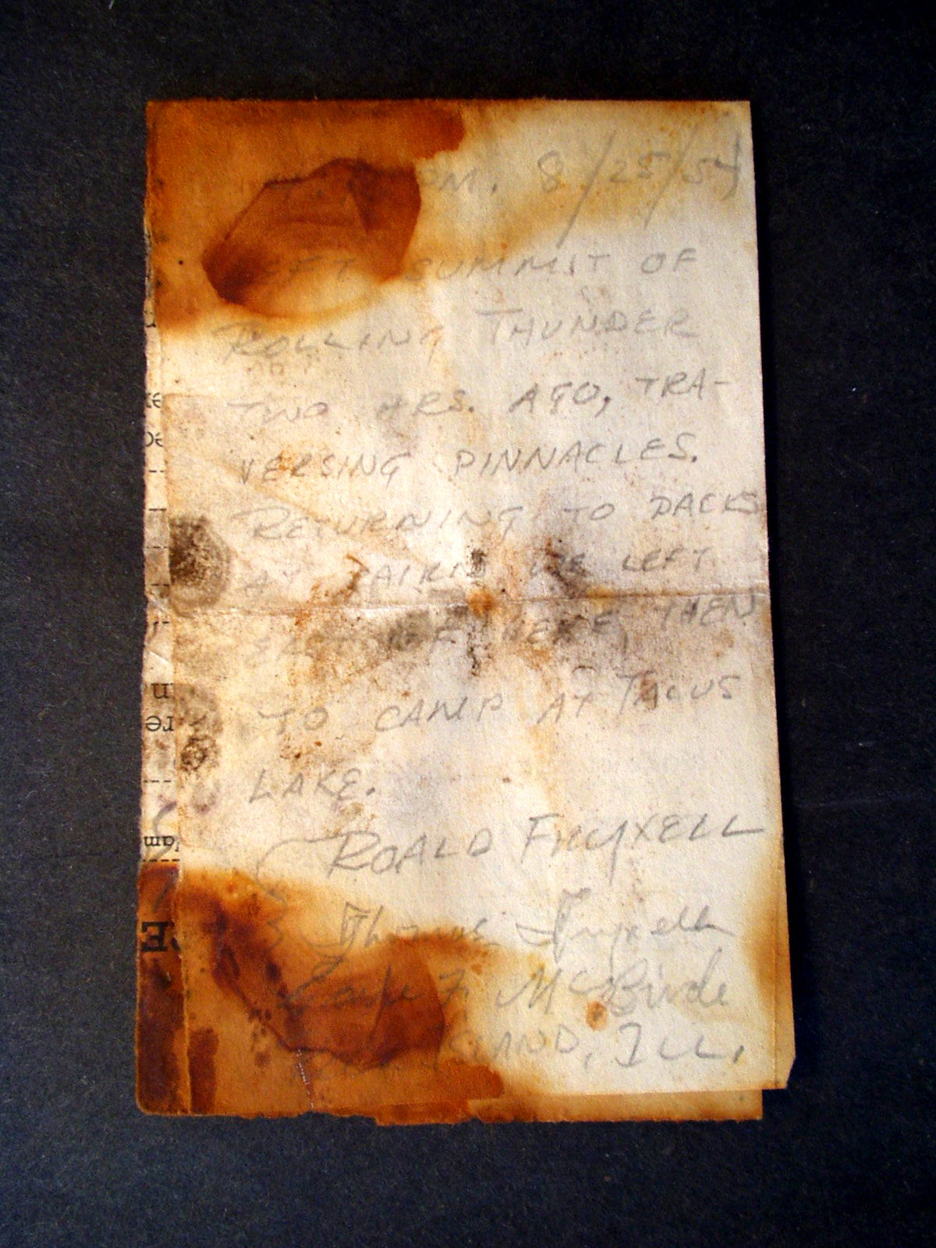 P.M. 8/25/54
LEFT SUMMIT OF
ROLLING THUNDER
TWO HRS. AGO, TRA-
VERSING PINNACLES.
RETURNING TO PACKS
AT CAIRN WE LEFT
EAST OF HERE, THEN
TO CAMP AT TALUS
LAKE.
ROALD FRYXELL
Thomas Fryxell
F. McBride
ISLAND, ILL.